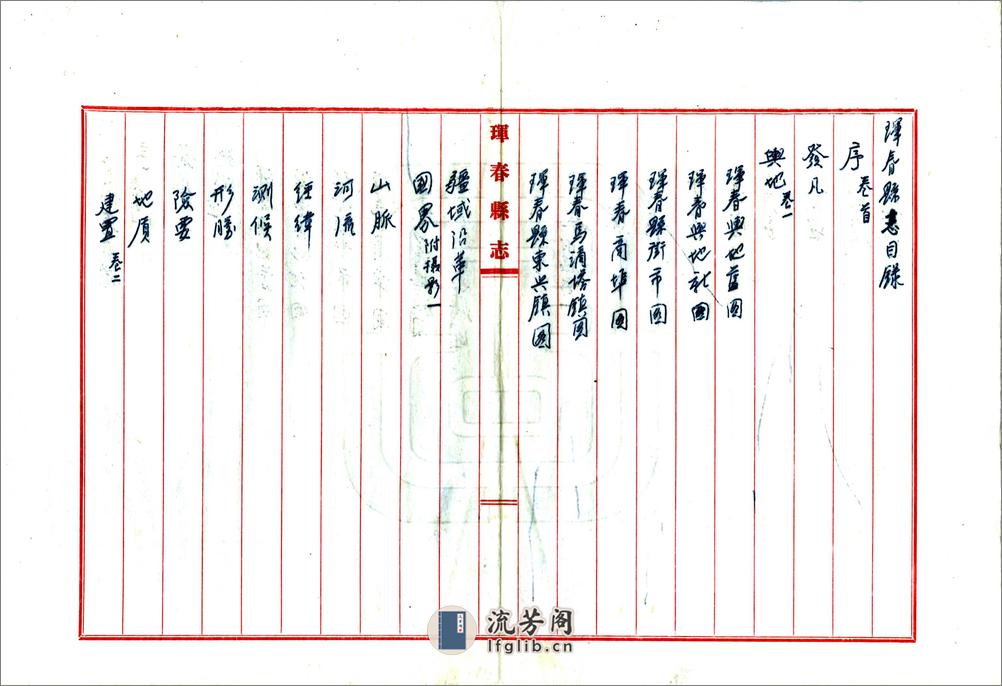 琿春縣志目錄
序 卷首
發凡
輿地 卷一
琿春輿地舊圖
琿春輿地新圖
琿春縣街市圖
琿春商埠圖
琿春馬滴塔鎮圖
琿春縣東興鎮圖
琿春縣志
疆域沿革
國界 附攝影一
山脈
河流
經緯
測候
形勝
險要
地質
建置 卷二
流芳阁
lfglib.cn